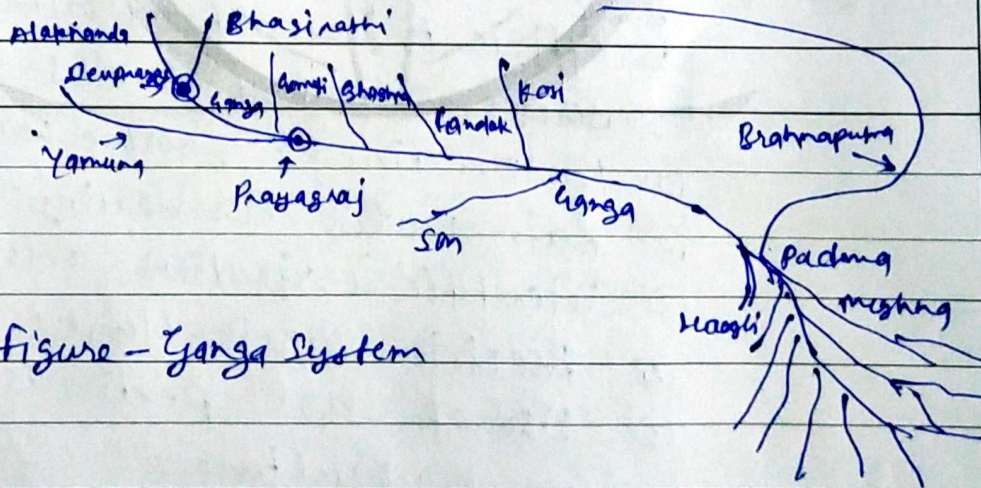 Alaknanda
Bhagirathi
Devprayag
Ganga
Gomti
Ghaghra
Gandak
Kosi
Yamuna
Prayagraj
Son
Ganga
Brahmaputra
Padma
Meghna
Hoogli
Figure - Ganga System